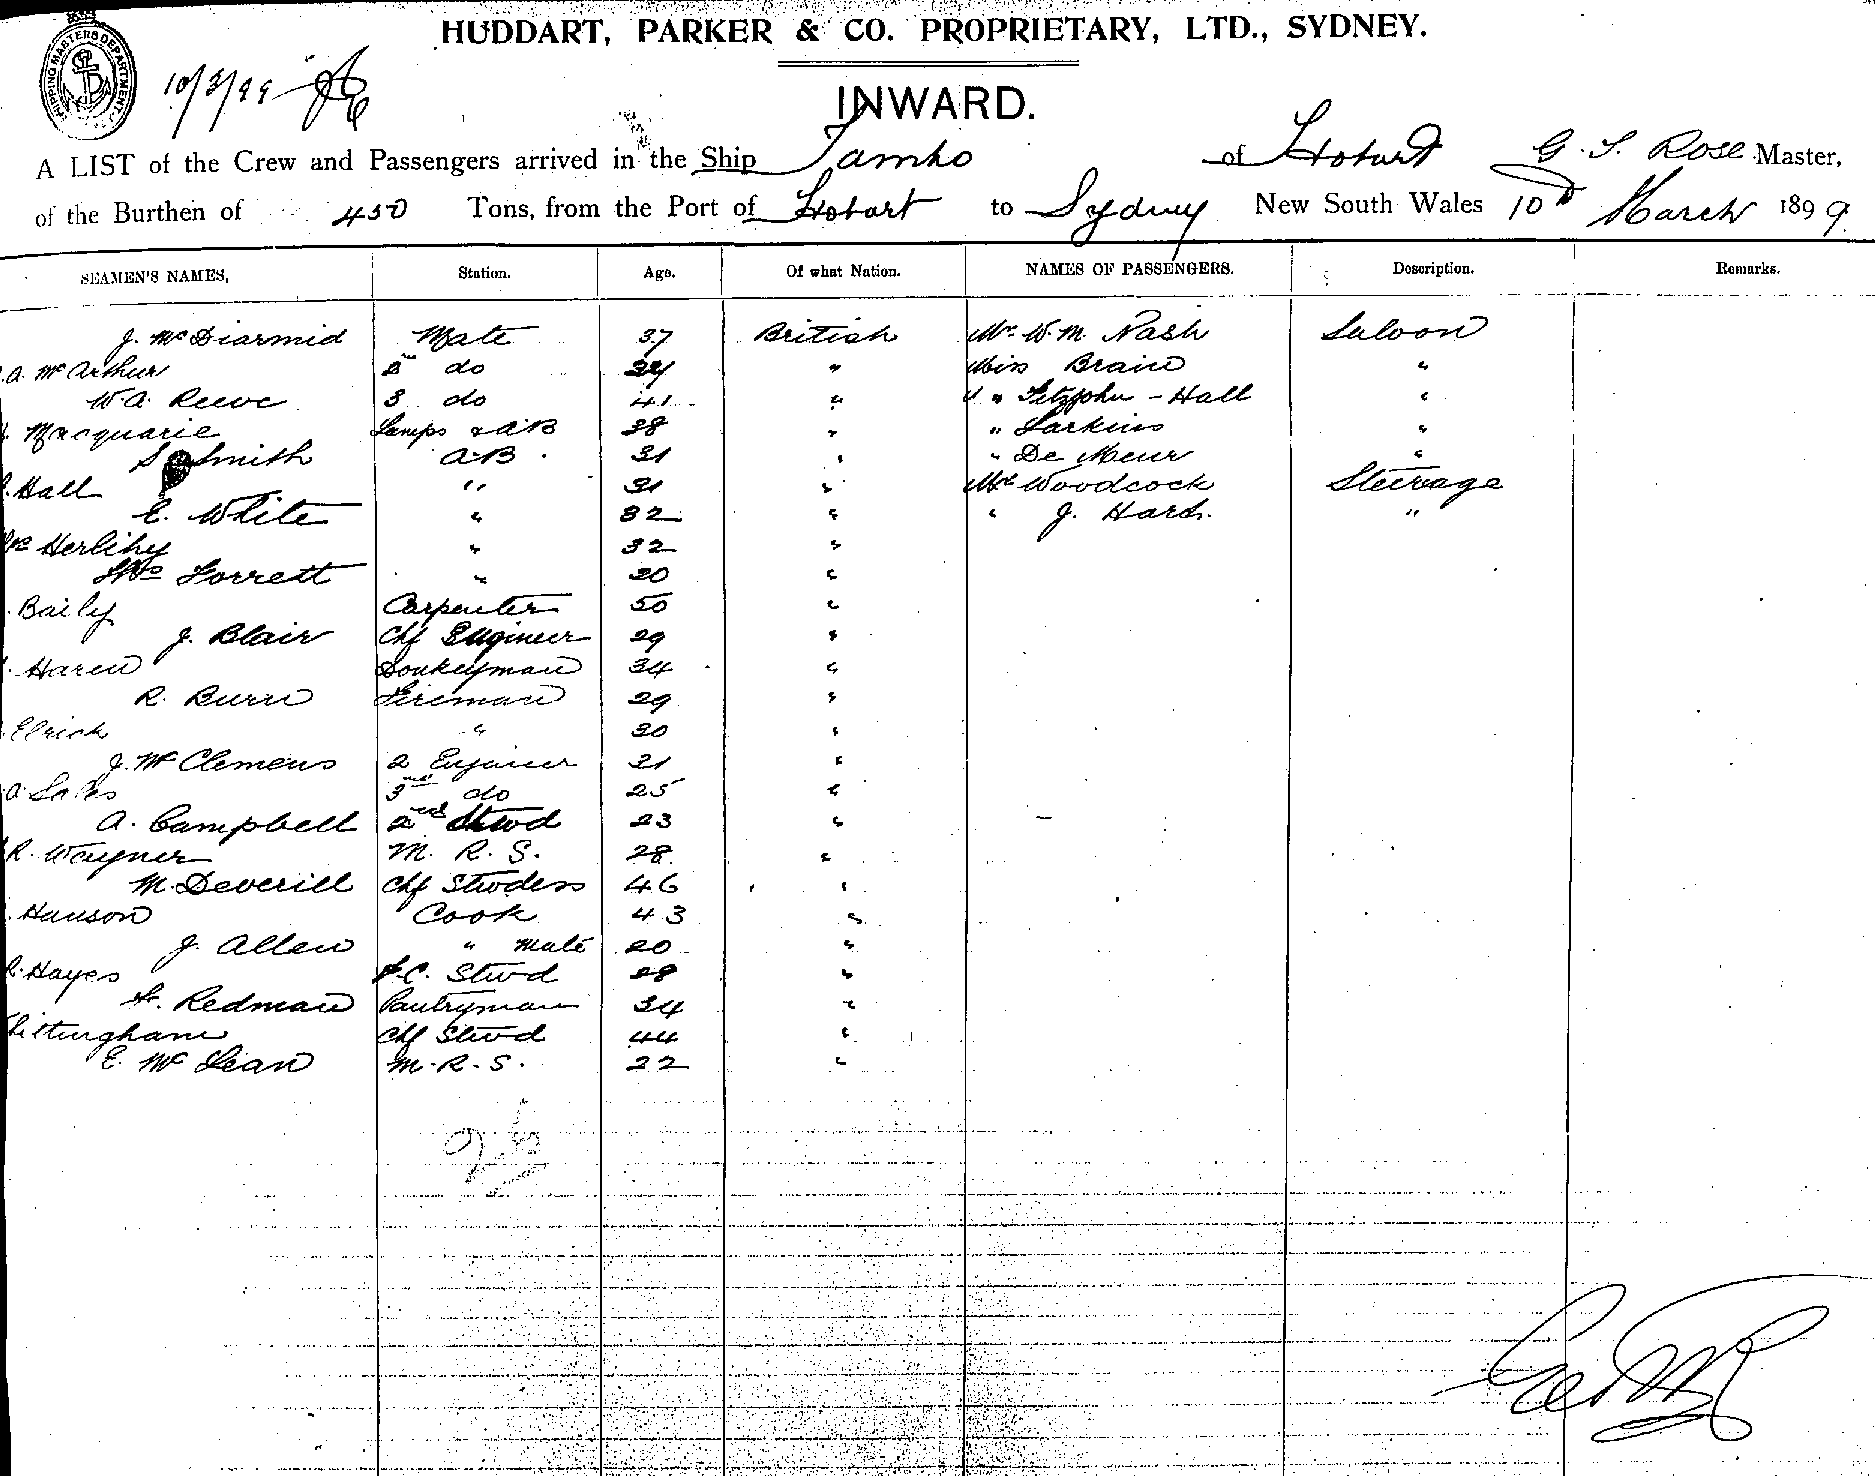 HUDDART, PARKER & CO. PROPRIETARY, LTD., SYDNEY.
SHIPPING MASTERS DEPARTMENT
10/3/99
INWARD.
A LIST of the Crew and Passengers arrived in the Ship of Hobart G. S. Rose Master,
of the Burthen of 450 Tons, from the Port of Hobart to Sydney New South Wales 10th March 1899
SEAMEN'S NAMES, Station. Age. Of what Nation. NAMES OF PASSENGERS. Description. Remarks.
J. McDiarmid Mate 37 British Mr. W. M. Nash Saloon
A. McArthur 2nd do 34 " Miss Brain "
W A. Reeve 3 do 41 " " " Fitzjohn - Hall "
Macquarie Lamps & AB 38 " " Larkins "
Smith A.B. 31 " " De Meur "
Hall " 31 " Mr Woodcock Steerage
E. White " 32 " " J. Hard. "
Herlihy " 32 "
Forrett " 20 "
Baily Carpenter 50 "
J. Blair Chf Engineer 29 "
Haren Donkeyman 34 "
R. Burn Fireman 29 "
Elrick " 30 "
J. McClemens 2 Engineer 21 "
3rd do 25 "
A. Campbell 2nd Stwd 23 "
R. Wagner M. R. S. 28 "
M. Deverill Chf Stwdess 46 "
Hanson Cook 43 "
J. Allen " Mate 20 "
Hayes F.C. Stwd 28 "
Redman Pantryman 34 "
hittingham Chf Stwd 44 "
E. McLean M.R.S. 22 "
25